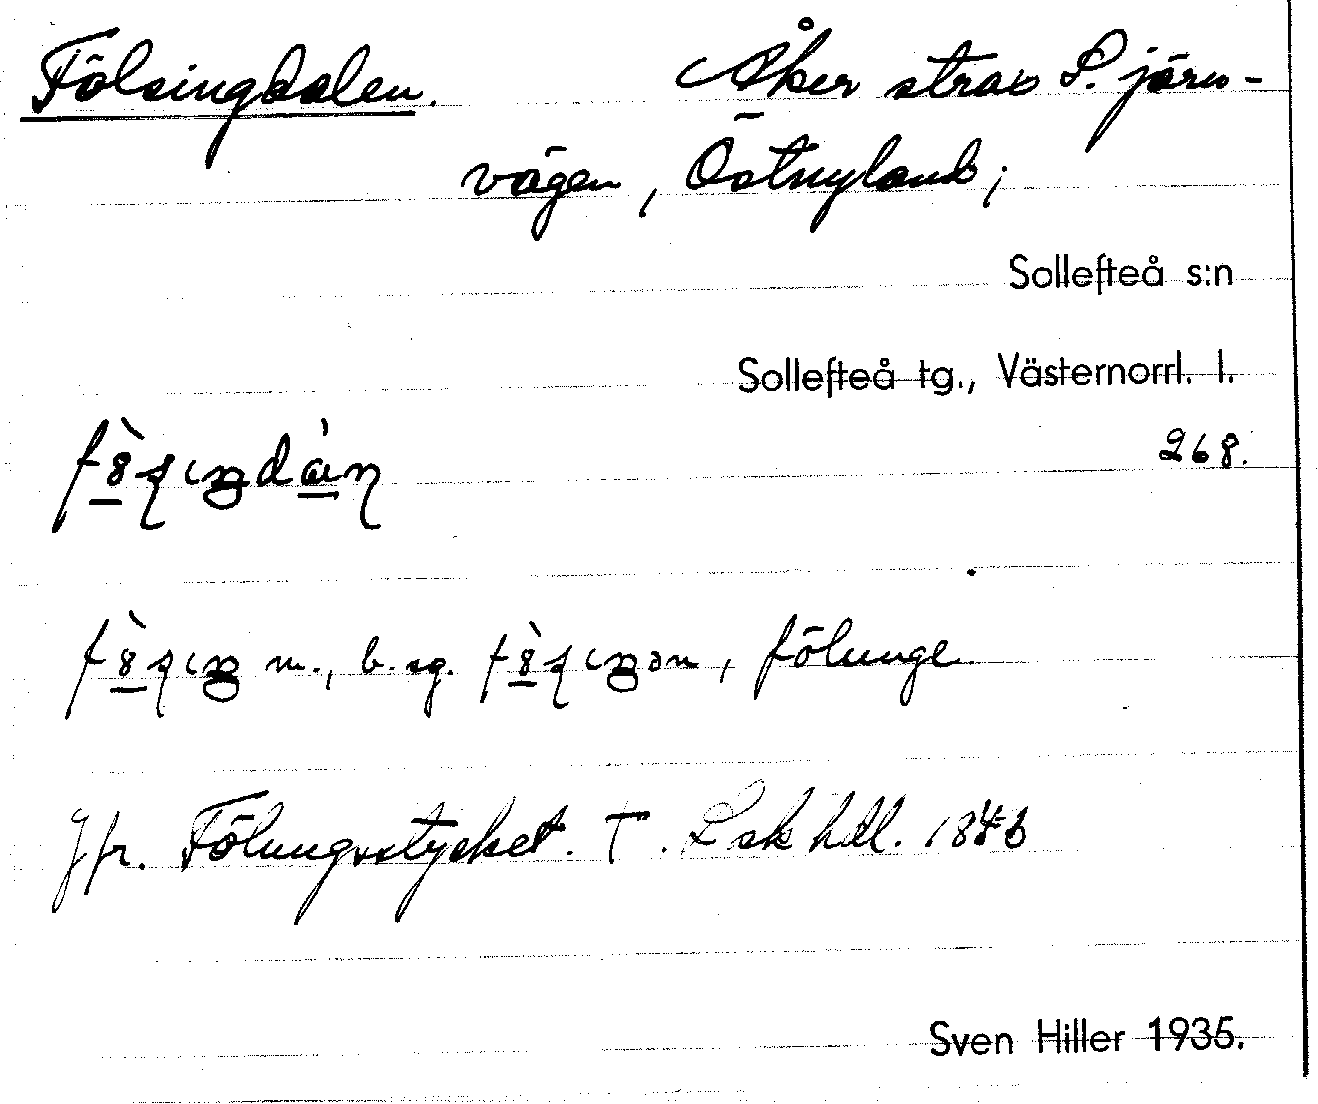 Fölsingdalen. Åker strax S. järn-
vägen, Östnyland;
Sollefteå s:n
Sollefteå tg., Västernorrl. l.
268.
m., b. sg. , fölunge
Jfr. Fölungsstycket. T. Lsk hdl. 1846
Sven Hiller 1935.